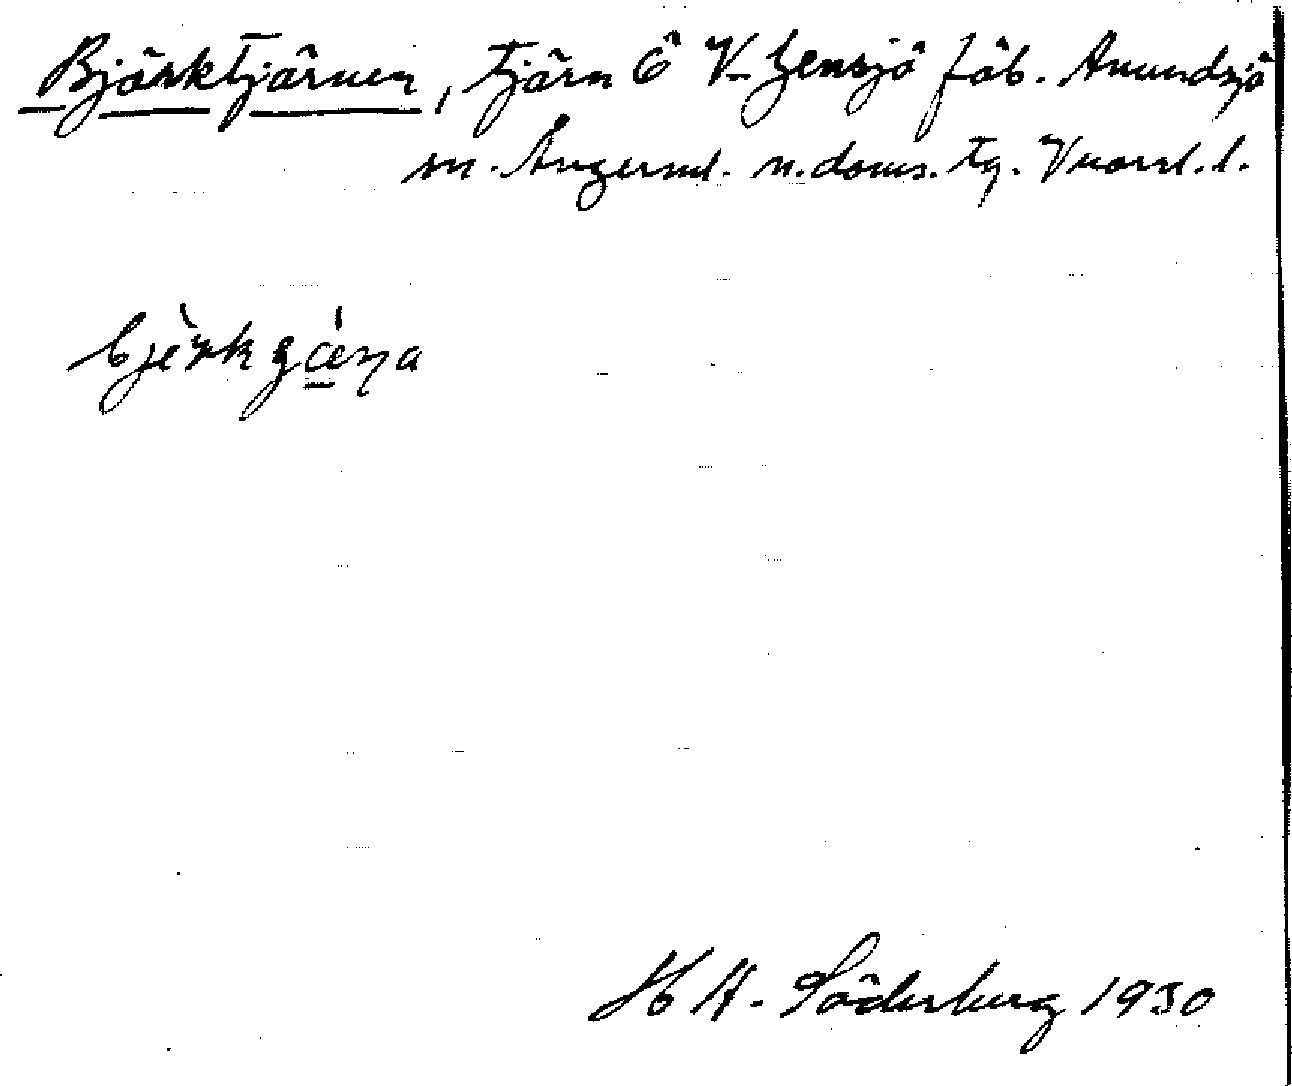 Björktjärnen, tjärn Ö V. Gensjö fäb. Anundsjö
sn. Ångerml. n. doms. tg. Vnorrl. l.
bjèrkgæ̀ṇa
H A. Söderberg 1930